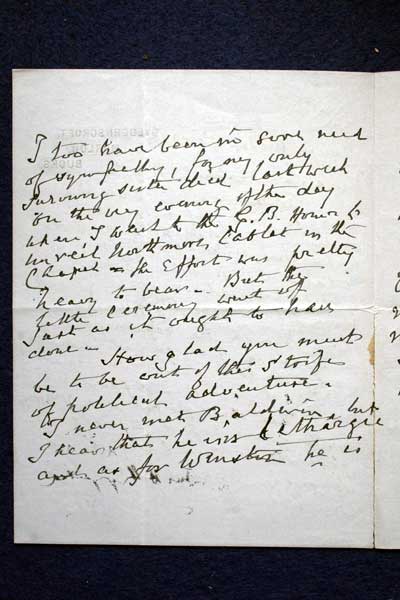 I too have been in sore need
of sympathy, for my only
surviving sister died last week
on the very evening of the day
when I went to the G.B. House to
unveil Northmore's Tablet in the
Chapel - the effort was pretty
heavy to bear - But the
little Ceremony went off
just as it ought to have
done -
How glad you must
be to be out of this strife
of political adventure -
I never met Baldwin, but
I hear that he is lethargic
and as for Winston he is